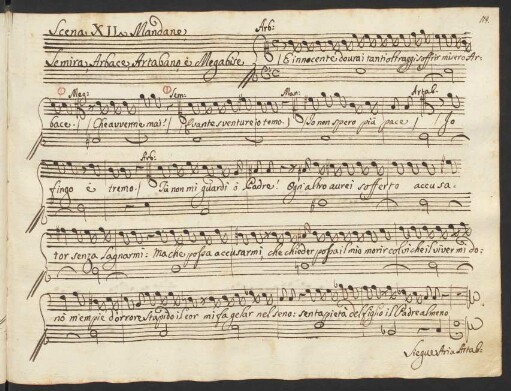 114.
Scena XII.a Mandane
Semira, Arbace, Artabano, e Megabise
Arb:
E innocente dovrai tanti oltraggi soffrir misero Ar-
Meg: Sem: Man: Artab:
bace. Che avvenne mai! Quante sventure io temo. Io non spero più pace Io
Arb:
fingo e tremo. Tu non mi guardi ò Padre! Ogn'altro avrei sofferto accusa-
tor senza lagnarmi: Ma che possa accusarmi, che chieder possa il mio morir colui che il viver mi do-
nò m'empie d'orrore stupido il cor mi fà gelar nel seno: senta pietà del figlio il Padre almeno
Siegue Aria Artab: